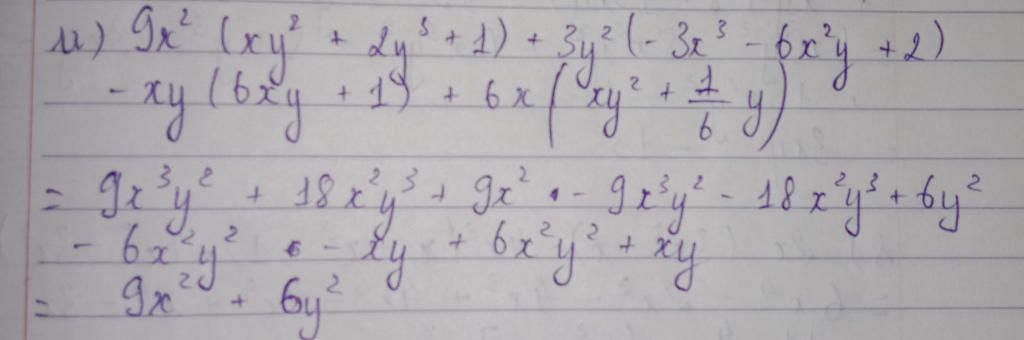 и) 9x² (xy² + 2y³ + 1) + 3y² (- 3x³ - 6x²y + 2)
- xy (6xy + 1) + 6x (xy² + 1/6 y)
= 9x³y² + 18x²y³ + 9x² - 9x³y² - 18x²y³ + 6y²
- 6x²y² - xy + 6x²y² + xy
= 9x² + 6y²